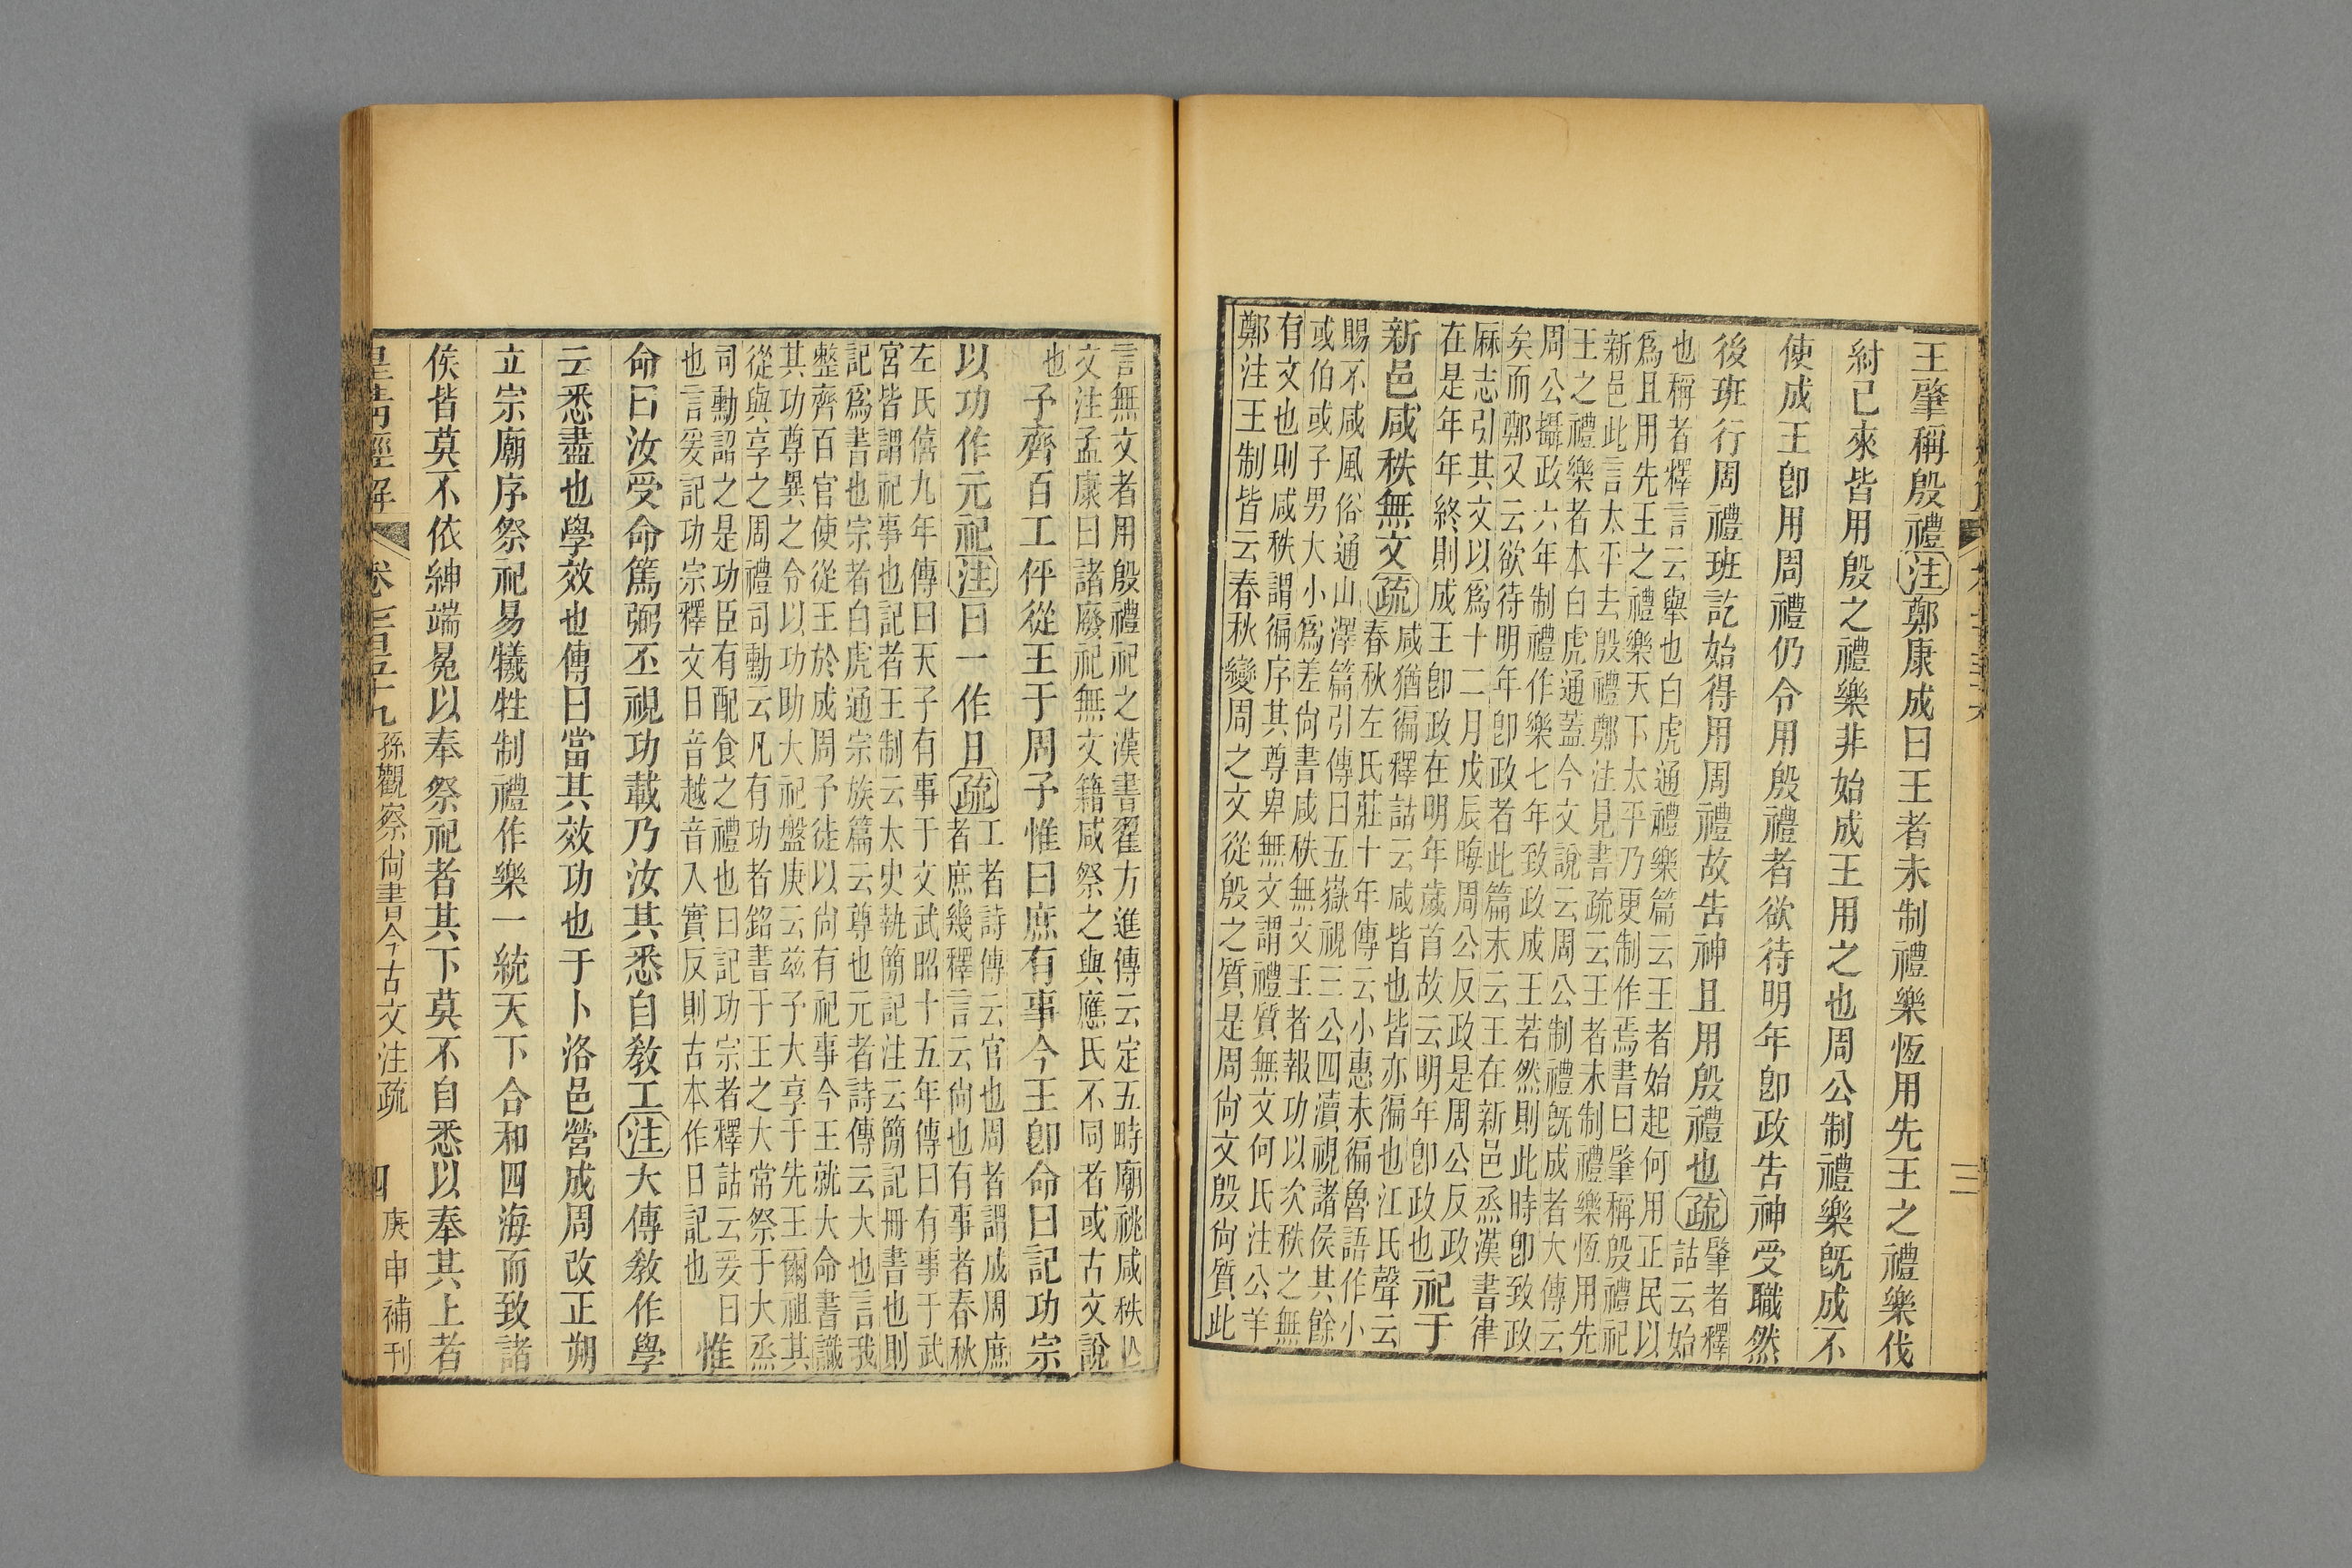 王肇稱殷禮注鄭康成曰王者未制禮樂恆用先王之禮樂伐
紂已來皆用殷之禮樂非始成王用之也周公制禮樂既成不
使成王卽用周禮仍令用殷禮者欲待明年卽政告神受職然
後班行周禮班訖始得用周禮故告神且用殷禮也疏肇者釋
詁云始
也稱者釋言云舉也白虎通禮樂篇云王者始起何用正民以
爲且用先王之禮樂天下太平乃更制作焉書曰肇稱殷禮祀
新邑此言太平去殷禮鄭注見書疏云王者未制禮樂恆用先
王之禮樂者本白虎通蓋今文說云周公制禮既成者大傳云
周公攝政六年制禮作樂七年致政成王若然則此時卽致政
矣而鄭又云欲待明年卽政者此篇末云王在新邑烝漢書律
厤志引其文以爲十二月戊辰晦周公反政是周公反政
在是年年終則成王卽政在明年歲首故云明年卽政也祀于
新邑咸秩無文疏咸猶徧釋詁云咸皆也皆亦徧也江氏聲云
春秋左氏莊十年傳云小惠未徧魯語作小
賜不咸風俗通山澤篇引傳曰五嶽視三公四瀆視諸侯其餘
或伯或子男大小爲差尙書咸秩無文王者報功以次秩之無
有文也則咸秩謂徧序其尊卑無文謂禮質無文何氏注公羊
鄭注王制皆云春秋變周之文從殷之質是周尙文殷尙質此
言無文者用殷禮祀之漢書翟方進傳云定五畤廟祧咸秩
文注孟康曰諸廢祀無文籍咸祭之與應氏不同者或古文說
也
予齊百工伻從王于周予惟曰庶有事今王卽命曰記功宗
以功作元祀注曰一作日疏工者詩傳云官也周者謂成周庶
者庶幾釋言云尙也有事者春秋
左氏僖九年傳曰天子有事于文武昭十五年傳曰有事于武
宮皆謂祀事也記者王制云太史執簡記注云簡記冊書也則
記爲書也宗者白虎通宗族篇云尊也元者詩傳云大也言我
整齊百官使從王於成周予徒以尙有祀事今王就大命書識
其功尊異之令以功助大祀盤庚云兹予大享于先王爾祖其
從與享之周禮司勳云凡有功者銘書于王之大常祭于大烝
司勳詔之是功臣有配食之禮也曰記功宗者釋詁云爰曰
也言爰記功宗釋文曰音越音入實反則古本作日記也
惟
命曰汝受命篤弼丕視功載乃汝其悉自敎工注大傳敎作學
云悉盡也學效也傳曰當其效功也于卜洛邑營成周改正朔
立宗廟序祭祀易犧牲制禮作樂一統天下合和四海而致諸
侯皆莫不依紳端冕以奉祭祀者其下莫不自悉以奉其上者
皇淸經解 卷七百五十九 孫觀察尙書今古文注疏 四 庚申補刊